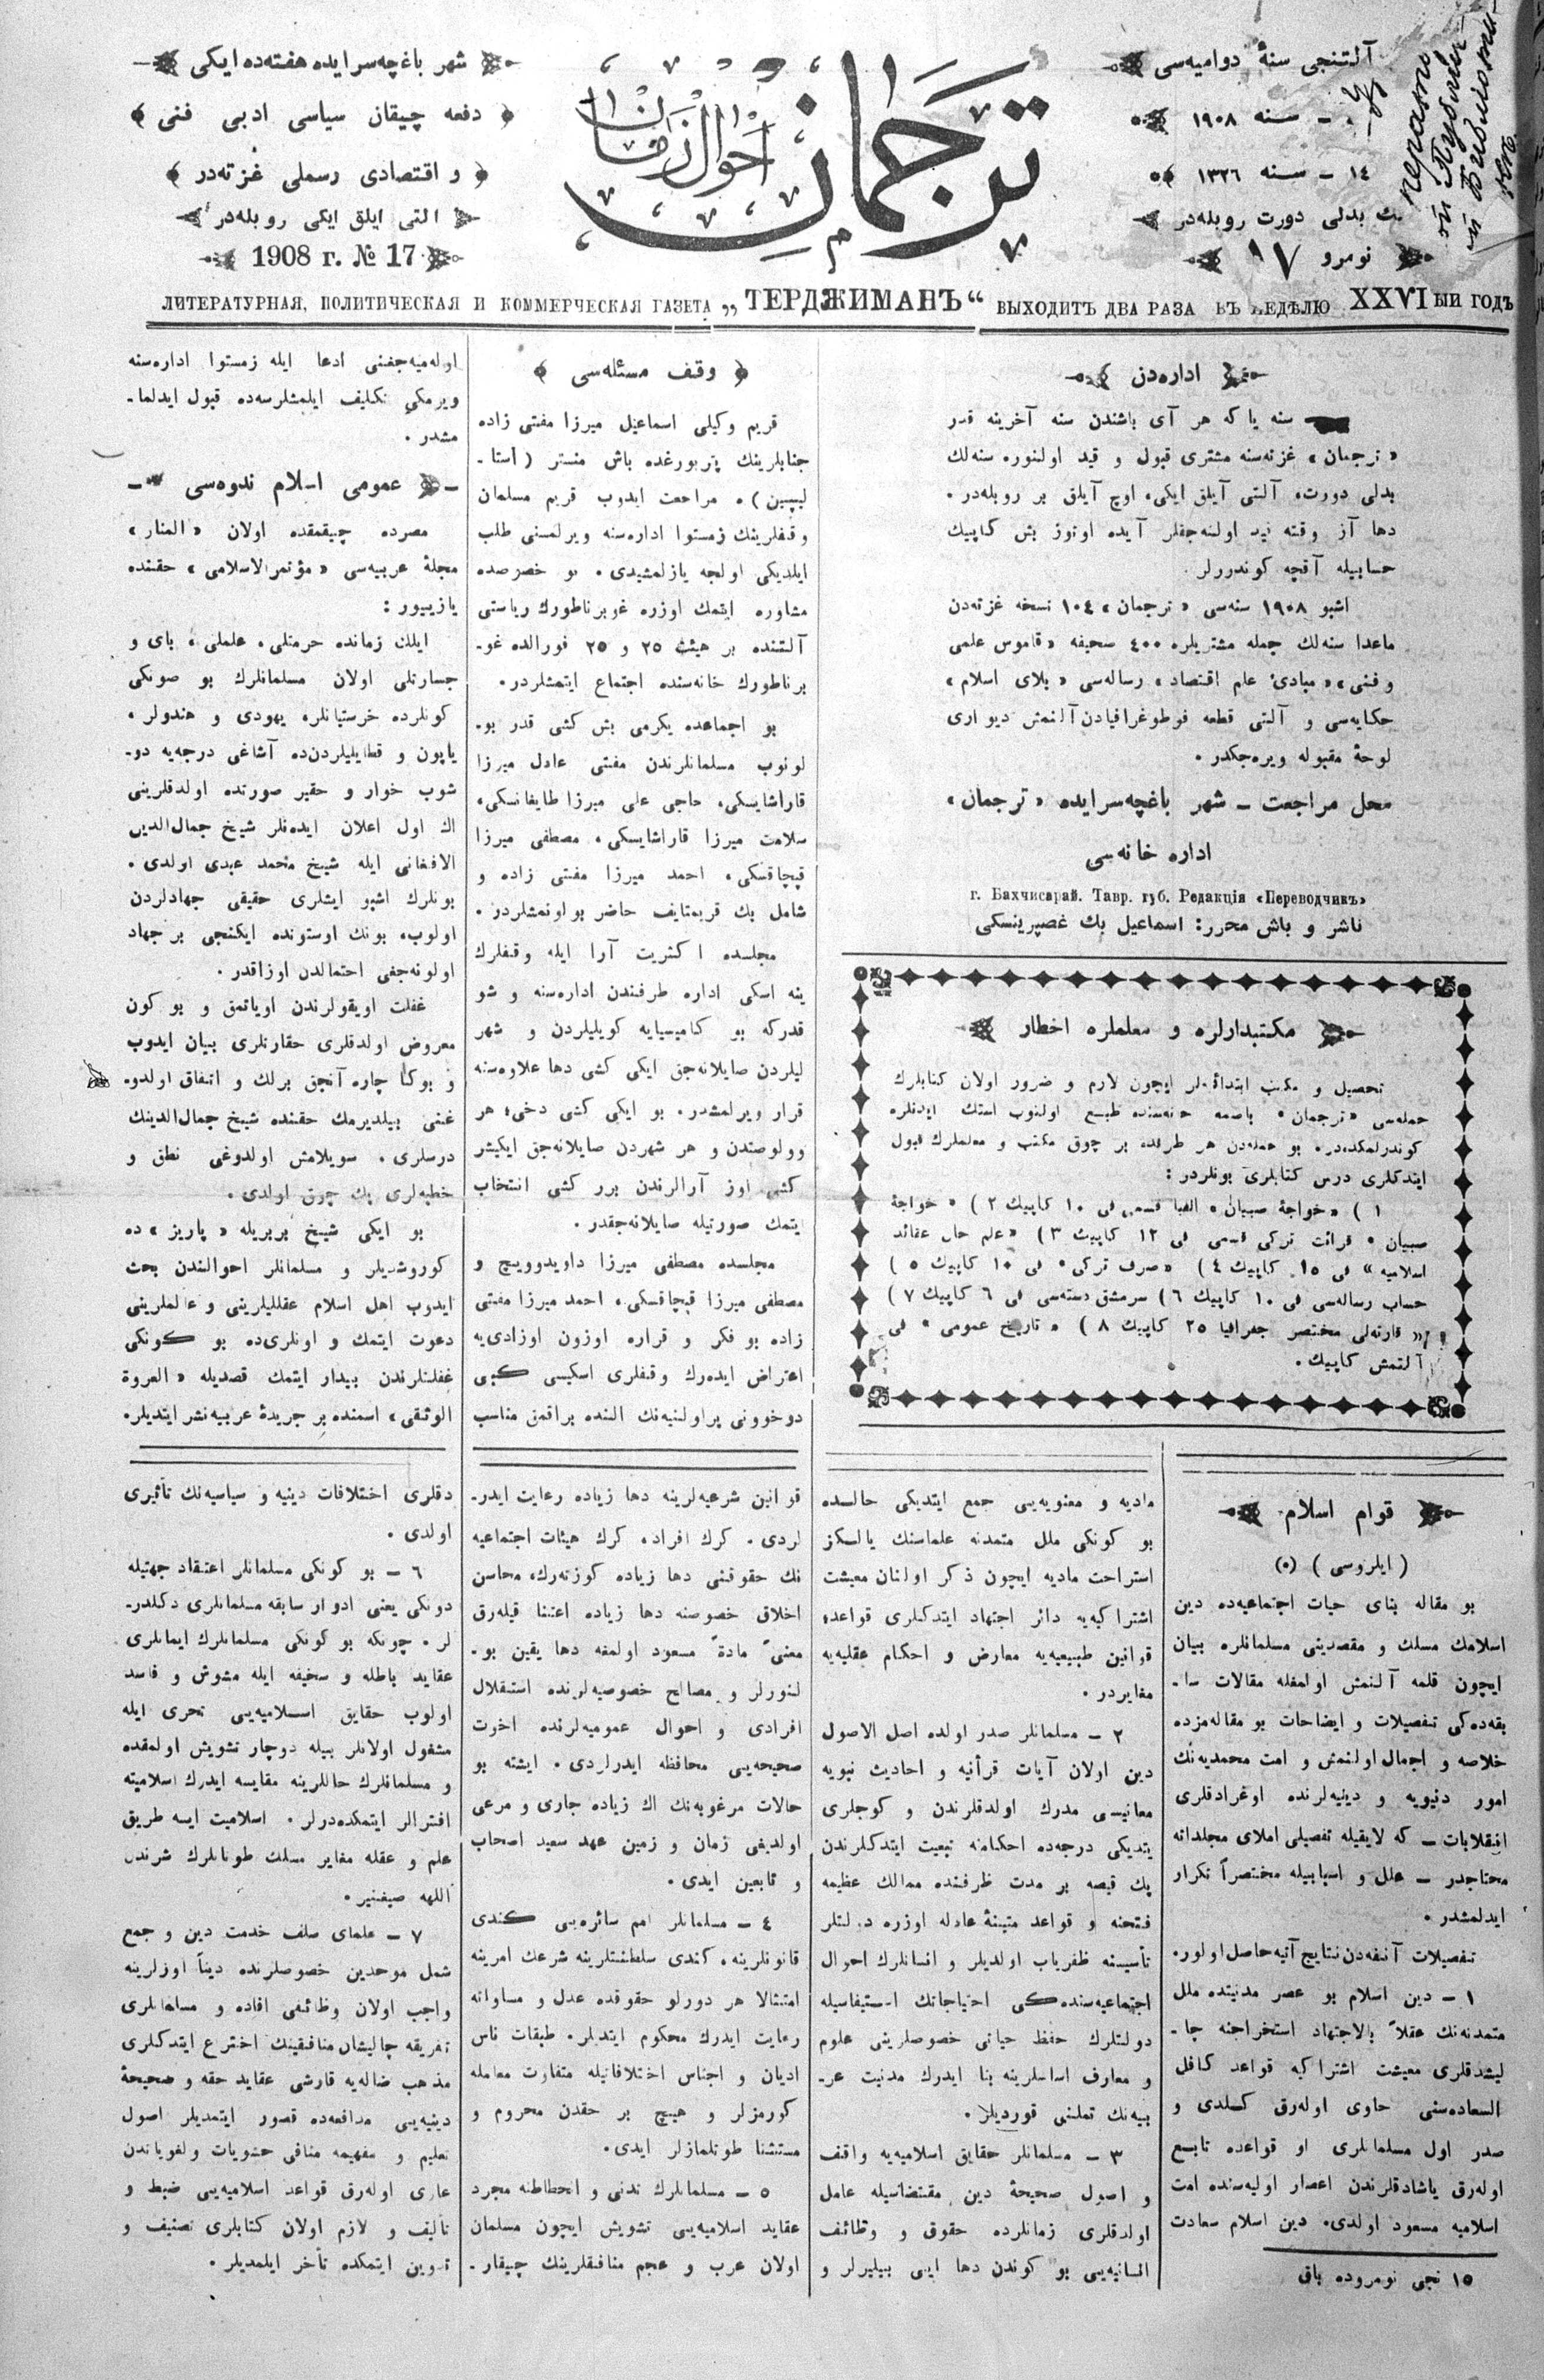 شهر باغچه‌سرايده هفته‌ده ايكى
دفعه چيقان سياسى ادبى فنى
و اقتصادى رسملى غزته‌در
التى ايلق ايكى روبله‌در
1908 г. № 17
ترجمان
احوال زمان
آلتنجى سنۀ دواميه‌سى
سنه ١٩٠٨
١٤ – سنه ١٣٢٦
بدلى دورت روبله‌در
نومرو ١٧
ЛИТЕРАТУРНАЯ, ПОЛИТИЧЕСКАЯ И КОММЕРЧЕСКАЯ ГАЗЕТА „ТЕРДЖИМАНЪ“ ВЫХОДИТЪ ДВА РАЗА ВЪ НЕДѢЛЮ XXVIЫЙ ГОДЪ
اداره‌دن
سنه يا كه هر آى باشندن سنه آخرينه قدر
«ترجمان» غزته‌سنه مشترى قبول و قيد اولنور. سنه‌لك
بدلى دورت، آلتى آيلق ايكى، اوچ آيلق بر روبله‌در.
دها آز وقته قيد اولنه‌جقلر آيده اوتوز بش كاپيك
حسابيله آقچه كوندررلر.
اشبو ١٩٠٨ سنه‌سى «ترجمان» ١٠٤ نسخه غزته‌دن
ماعدا سنه‌لك جمله مشتريلره ٤٠٠ صحيفه «قاموس علمى
و فنى» «مبادئ علم اقتصاد» رساله‌سى «بلاى اسلام»
حكايه‌سى و آلتى قطعه فوطوغرافيادن آلنمش ديوارى
لوحۀ مقبوله ويره‌جكدر.
محل مراجعت – شهر باغچه‌سرايده «ترجمان»
اداره خانه‌سى
г. Бахчисарай. Тавр. губ. Редакція «Переводчикъ»
ناشر و باش محرر: اسماعيل بك غصپرينسكى
مكتبدارلره و معلملره اخطار
تحصيل و مكتب ابتدائيلر ايچون لازم و ضرور اولان كتابلرك
جمله‌سى «ترجمان» باصمه خانه‌سنده طبع اولنوب استك ايدنلره
كوندرلمكده‌در. بو جمله‌دن هر طرفده بر چوق مكتب و معلملرك قبول
ايتدكلرى درس كتابلرى بونلردر:
١) «خواجۀ صبيان» الفبا قسمى فى ١٠ كاپيك ٢) «خواجۀ
صبيان» قرائت تركى قسمى فى ١٢ كاپيك ٣) «علم حال عقائد
اسلاميه» فى ١٥ كاپيك ٤) «صرف تركى» فى ١٠ كاپيك ٥)
حساب رساله‌سى فى ١٠ كاپيك ٦) سرمشق دسته‌سى فى ٦ كاپيك ٧)
«قارته‌لى مختصر جغرافيا ٢٥ كاپيك ٨) «تاريخ عمومى» فى
آلتمش كاپيك.
وقف مسئله‌سى
قريم وكيلى اسماعيل ميرزا مفتى زاده
جنابلرينك پتربورغده باش منستر (استا-
ليپين). مراجعت ايدوب قريم مسلمان
وقفلرينك زمستوا اداره‌سنه ويرلمسنى طلب
ايلديكى اولجه يازلمشيدى. بو خصوصده
مشاوره ايتمك اوزره غوبرناطورك رياستى
آلتنده بر هيئت ٢٥ و ٢٥ فورالده غو-
برناطورك خانه‌سنده اجتماع ايتمشلردر.
بو اجماعده يكرمى بش كشى قدر بو-
لونوب مسلمانلرندن مفتى عادل ميرزا
قاراشايسكى، حاجى على ميرزا طايغانسكى،
سلامت ميرزا قاراشايسكى، مصطفى ميرزا
قپچاقسكى، احمد ميرزا مفتى زاده و
شامل بك قريمتايف حاضر بولونمشلردر.
مجلسده اكثريت آرا ايله وقفلرك
ينه اسكى اداره طرفندن اداره‌سنه و شو
قدركه بو كاميسيايه كويليلردن و شهر
ليلردن صايلانه‌جق ايكى كشى دها علاوه‌سنه
قرار ويرلمشدر. بو ايكى كشى دخى؛ هر
وولوصتدن و هر شهردن صايلانه‌جق ايكيشر
كشى اوز آرالرندن برر كشى انتخاب
ايتمك صورتيله صايلانه‌جقدر.
مجلسده مصطفى ميرزا داويدوويچ و
مصطفى ميرزا قپچاقسكى، احمد ميرزا مفتى
زاده بو فكر و قراره اوزون اوزادى‌يه
اعتراض ايده‌رك وقفلرى اسكيسى كبى
دوخوونى پراولنيه‌نك النده براقمق مناسب
اوله‌ميه‌جغنى ادعا ايله زمستوا اداره‌سنه
ويرمكى تكليف ايلمشلرسه‌ده قبول ايدلما-
مشدر.
عمومى اسلام ندوه‌سى
مصرده چيقمقده اولان «المنار»
مجلۀ عربيه‌سى «مؤتمر الاسلامى» حقنده
يازييور:
ايلك زمانده حرمتلى، علملى، باى و
جسارتلى اولان مسلمانلرك بو صونكى
كونلرده خرستيانلر، يهودى و هندولر،
ياپون و قطايليلردن‌ده آشاغى درجه‌يه دو-
شوب خوار و حقير صورتده اولدقلرينى
اك اول اعلان ايده‌نلر شيخ جمال‌الدين
الافغانى ايله شيخ محمد عبدى اولدى.
بونلرك اشبو ايشلرى حقيقى جهادلردن
اولوب، بونك اوستونده ايكنجى بر جهاد
اولونه‌جغى احتمالدن اوزاقدر.
غفلت اويقولرندن اوياتمق و بو كون
معروض اولدقلرى حقارتلرى بيان ايدوب
و بوكا چاره آنجق برلك و اتفاق اولدو-
غنى بيلديرمك حقنده شيخ جمال‌الدينك
درسلرى. سويلامش اولدوغى نطق و
خطبه‌لرى پك چوق اولدى.
بو ايكى شيخ بربريله «پاريز» ده
كوروشديلر و مسلمانلر احوالندن بحث
ايدوب اهل اسلام عقلليلرينى و عالملرينى
دعوت ايتمك و اونلرى‌ده بو كونكى
غفلتلرندن بيدار ايتمك قصديله «العروة
الوثقى» اسمنده بر جريدۀ عربيه نشر ايتديلر.
قوام اسلام
(ايلروسى) (٥)
بو مقاله بناى حيات اجتماعيه‌ده دين
اسلامك مسلك و مقصدينى مسلمانلره بيان
ايچون قلمه آلنمش اولمغله مقالات سا-
بقه‌ده‌كى تفصيلات و ايضاحات بو مقاله‌مزده
خلاصه و اجمال اولنمش و امت محمديه‌نك
امور دنيويه و دينيه‌لرنده اوغرادقلرى
انقلابات – كه لايقيله تفصيلى املاى مجلداته
محتاجدر – علل و اسبابيله مختصراً تكرار
ايدلمشدر.
تفصيلات آنفه‌دن نتايج آتيه حاصل اولور.
١ – دين اسلام بو عصر مدنيتده ملل
متمدنه‌نك عقلاً بالاجتهاد استخراجنه چا-
ليشدقلرى معيشت اشتراكيه قواعد كافل
السعاده‌سنى حاوى اوله‌رق كلدى و
صدر اول مسلمانلرى او قواعده تابع
اوله‌رق ياشادقلرندن اعصار اوليه‌سنده امت
اسلاميه مسعود اولدى. دين اسلام سعادت
١٥ نجى نومروده باق
ماديه و معنويه‌يى جمع ايتديكى حالده
بو كونكى ملل متمدنه علماسنك يالكز
استراحت ماديه ايچون ذكر اولنان معيشت
اشتراكيه‌يه دائر اجتهاد ايتدكلرى قواعد،
قوانين طبيعيه‌يه معارض و احكام عقليه‌يه
مغايردر.
٢ – مسلمانلر صدر اولده اصل الاصول
دين اولان آيات قرأنيه و احاديث نبويه
معانيسى مدرك اولدقلرندن و كوجلرى
يتديكى درجه‌ده احكامنه تبعيت ايتدكلرندن
پك قيصه بر مدت ظرفنده ممالك عظيمه
فتحنه و قواعد متينۀ عادله اوزره دولتلر
تأسيسنه ظفرياب اولديلر و انسانلرك احوال
اجتماعيه‌سنده‌كى احتياجاتك استيفاسيله
دولتلرك حفظ حياتى خصوصلرينى علوم
و معارف اساسلرينه بنا ايدرك مدنيت عر-
بيه‌نك تملنى قورديلر.
٣ – مسلمانلر حقايق اسلاميه‌يه واقف
و اصول صحيحۀ دين مقتضاسيله عامل
اولدقلرى زمانلرده حقوق و وظائف
انسانيه‌يى بو كوندن دها ايى بيليرلر و
قوانين شرعيه‌لرينه دها زياده رعايت ايدر-
لردى. كرك افراد، كرك هيئات اجتماعيه
نك حقوقنى دها زياده كوزته‌رك، محاسن
اخلاق خصوصنه دها زياده اعتنا قيله‌رق
معنىً مادةً مسعود اولمغه دها يقين بو-
لنورلر و مصالح خصوصيه‌لرنده استقلال
افرادى و احوال عموميه‌لرنده اخوت
صحيحه‌يى محافظه ايدرلردى. ايشته بو
حالات مرغوبه‌نك اك زياده جارى و مرعى
اولديغى زمان و زمين عهد سعيد اصحاب
و تابعين ايدى.
٤ – مسلمانلر امم سائره‌يى كندى
قانونلرينه، كندى سلطنتلرينه شرعك امرينه
امتثالا هر دورلو حقوقده عدل و مساواته
رعايت ايدرك محكوم ايتديلر. طبقات ناس
اديان و اجناس اختلافاتيله متفاوت معامله
كورمزلر و هيچ بر حقدن محروم و
مستثنا طوتلمازلر ايدى.
٥ – مسلمانلرك تدنى و انحطاطنه مجرد
عقايد اسلاميه‌يى تشويش ايچون مسلمان
اولان عرب و عجم منافقلرينك چيقار-
دقلرى اختلافات دينيه و سياسيه‌نك تأثيرى
اولدى.
٦ – بو كونكى مسلمانلر اعتقاد جهتيله
دونكى يعنى ادوار سابقه مسلمانلرى دكلدر-
لر. چونكه بو كونكى مسلمانلرك ايمانلرى
عقايد باطله و سخيفه ايله مشوش و فاسد
اولوب حقايق اسلاميه‌يى تحرى ايله
مشغول اولانلر بيله دوچار تشويش اولمقده
و مسلمانلرك حاللرينه مقايسه ايدرك اسلاميته
افترالر ايتمكده‌درلر. اسلاميت ايسه طريق
علم و عقله مغاير مسلك طوتانلرك شرندن
اللهه صيغنير.
٧ – علماى سلف خدمت دين و جمع
شمل موحدين خصوصلرنده ديناً اوزلرينه
واجب اولان وظائفى افاده و مسلمانلرى
تفريقه چاليشان منافقينك اختراع ايتدكلرى
مذهب ضاله‌يه قارشى عقايد حقه و صحيحۀ
دينيه‌يى مدافعه‌ده قصور ايتمديلر اصول
تعليم و تفهيمه منافى حشويات و لغوياتدن
عارى اوله‌رق قواعد اسلاميه‌يى ضبط و
تأليف و لازم اولان كتابلرى تصنيف و
تدوين ايتمكده تأخر ايلمديلر.